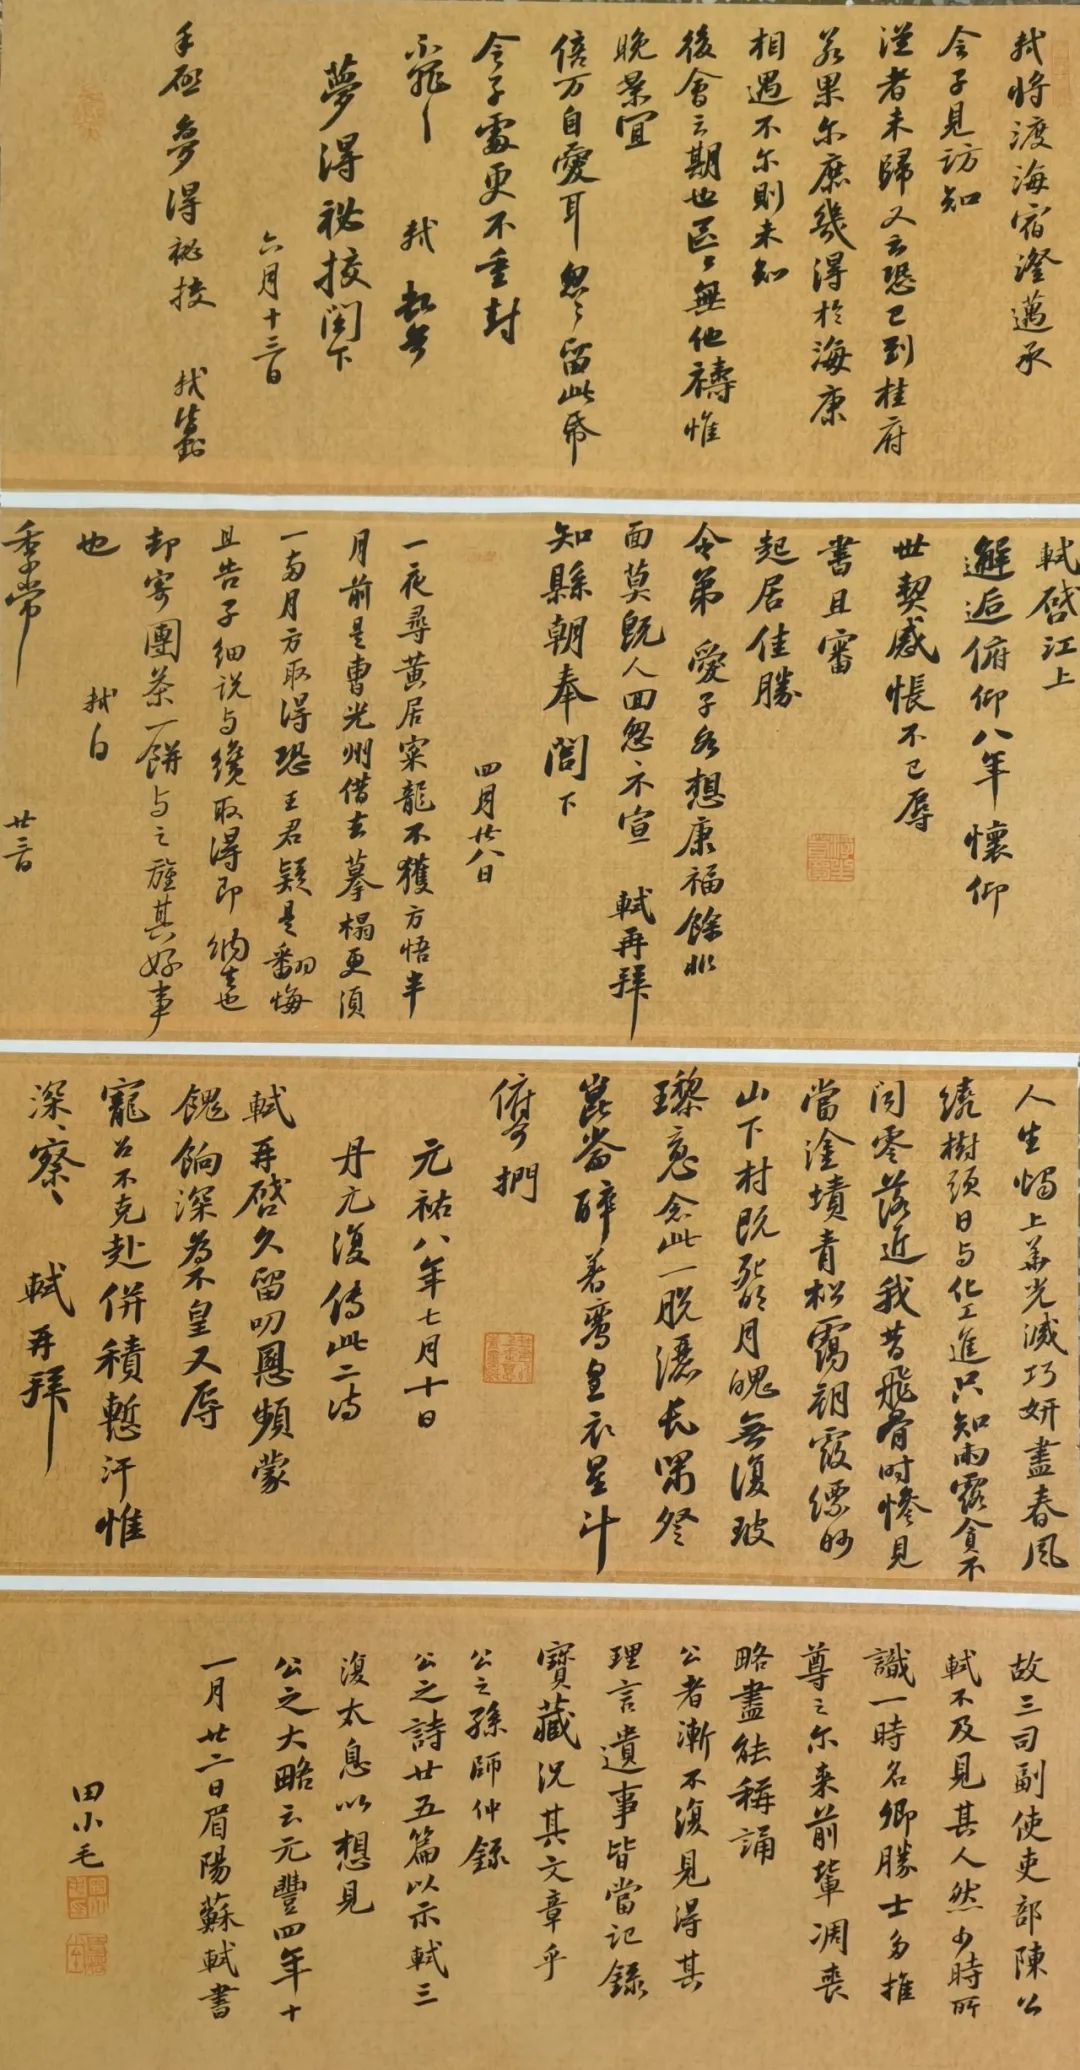 軾將渡海宿澄邁承
令子見訪知
從者未歸又云恐已到桂府
若果尔庶幾得於海康
相遇不尔則未知
後會之期也區區無他禱惟
晚景宜
倍万自愛耳忽忽留此帋
令子處更不重封
不罪〻軾頓首
夢得祕挍閣下
六月十三日
手啓夢得祕挍軾封
軾啓江上
邂逅俯仰八年懷仰
世契感悵不已辱
書且審
起居佳勝
令弟愛子各想康福餘非
面莫既人回忽〻不宣軾再拜
知縣朝奉閣下
四月廿八日
一夜尋黃居寀龍不獲方悟半
月前是曹光州借去摹榻更須
一兩月方取得恐王君疑是翻悔
且告子細說与纔取得即納去也
却寄團茶一餅与之旌其好事
也軾白
季常廿三日
人生燭上華光滅巧妍盡春風
繞樹頭日与化工進只知雨露貪不
聞零落近我昔飛骨時慘見
當塗墳青松靄朝霞縹眇
山下村既死明月魄無復玻
瓈魂念此一脫灑長嘯登
崑崙醉著鸞皇衣星斗
俯可捫
元祐八年七月十日
丹元復傳此二詩
軾再啓久留叨恩頻蒙
餽餉深爲不皇又辱
寵召不克赴併積慙汗惟
深察深察軾再拜
故三司副使吏部陳公
軾不及見其人然少時所
識一時名卿勝士多推
尊之尔来前輩凋喪
略盡能稱誦
公者漸不復見得其
理言遺事皆當記錄
寶藏況其文章乎
公之孫師仲錄
公之詩廿五篇以示軾三
復太息以想見
公之大略云元豐四年十
一月廿二日眉陽蘇軾書
田小毛